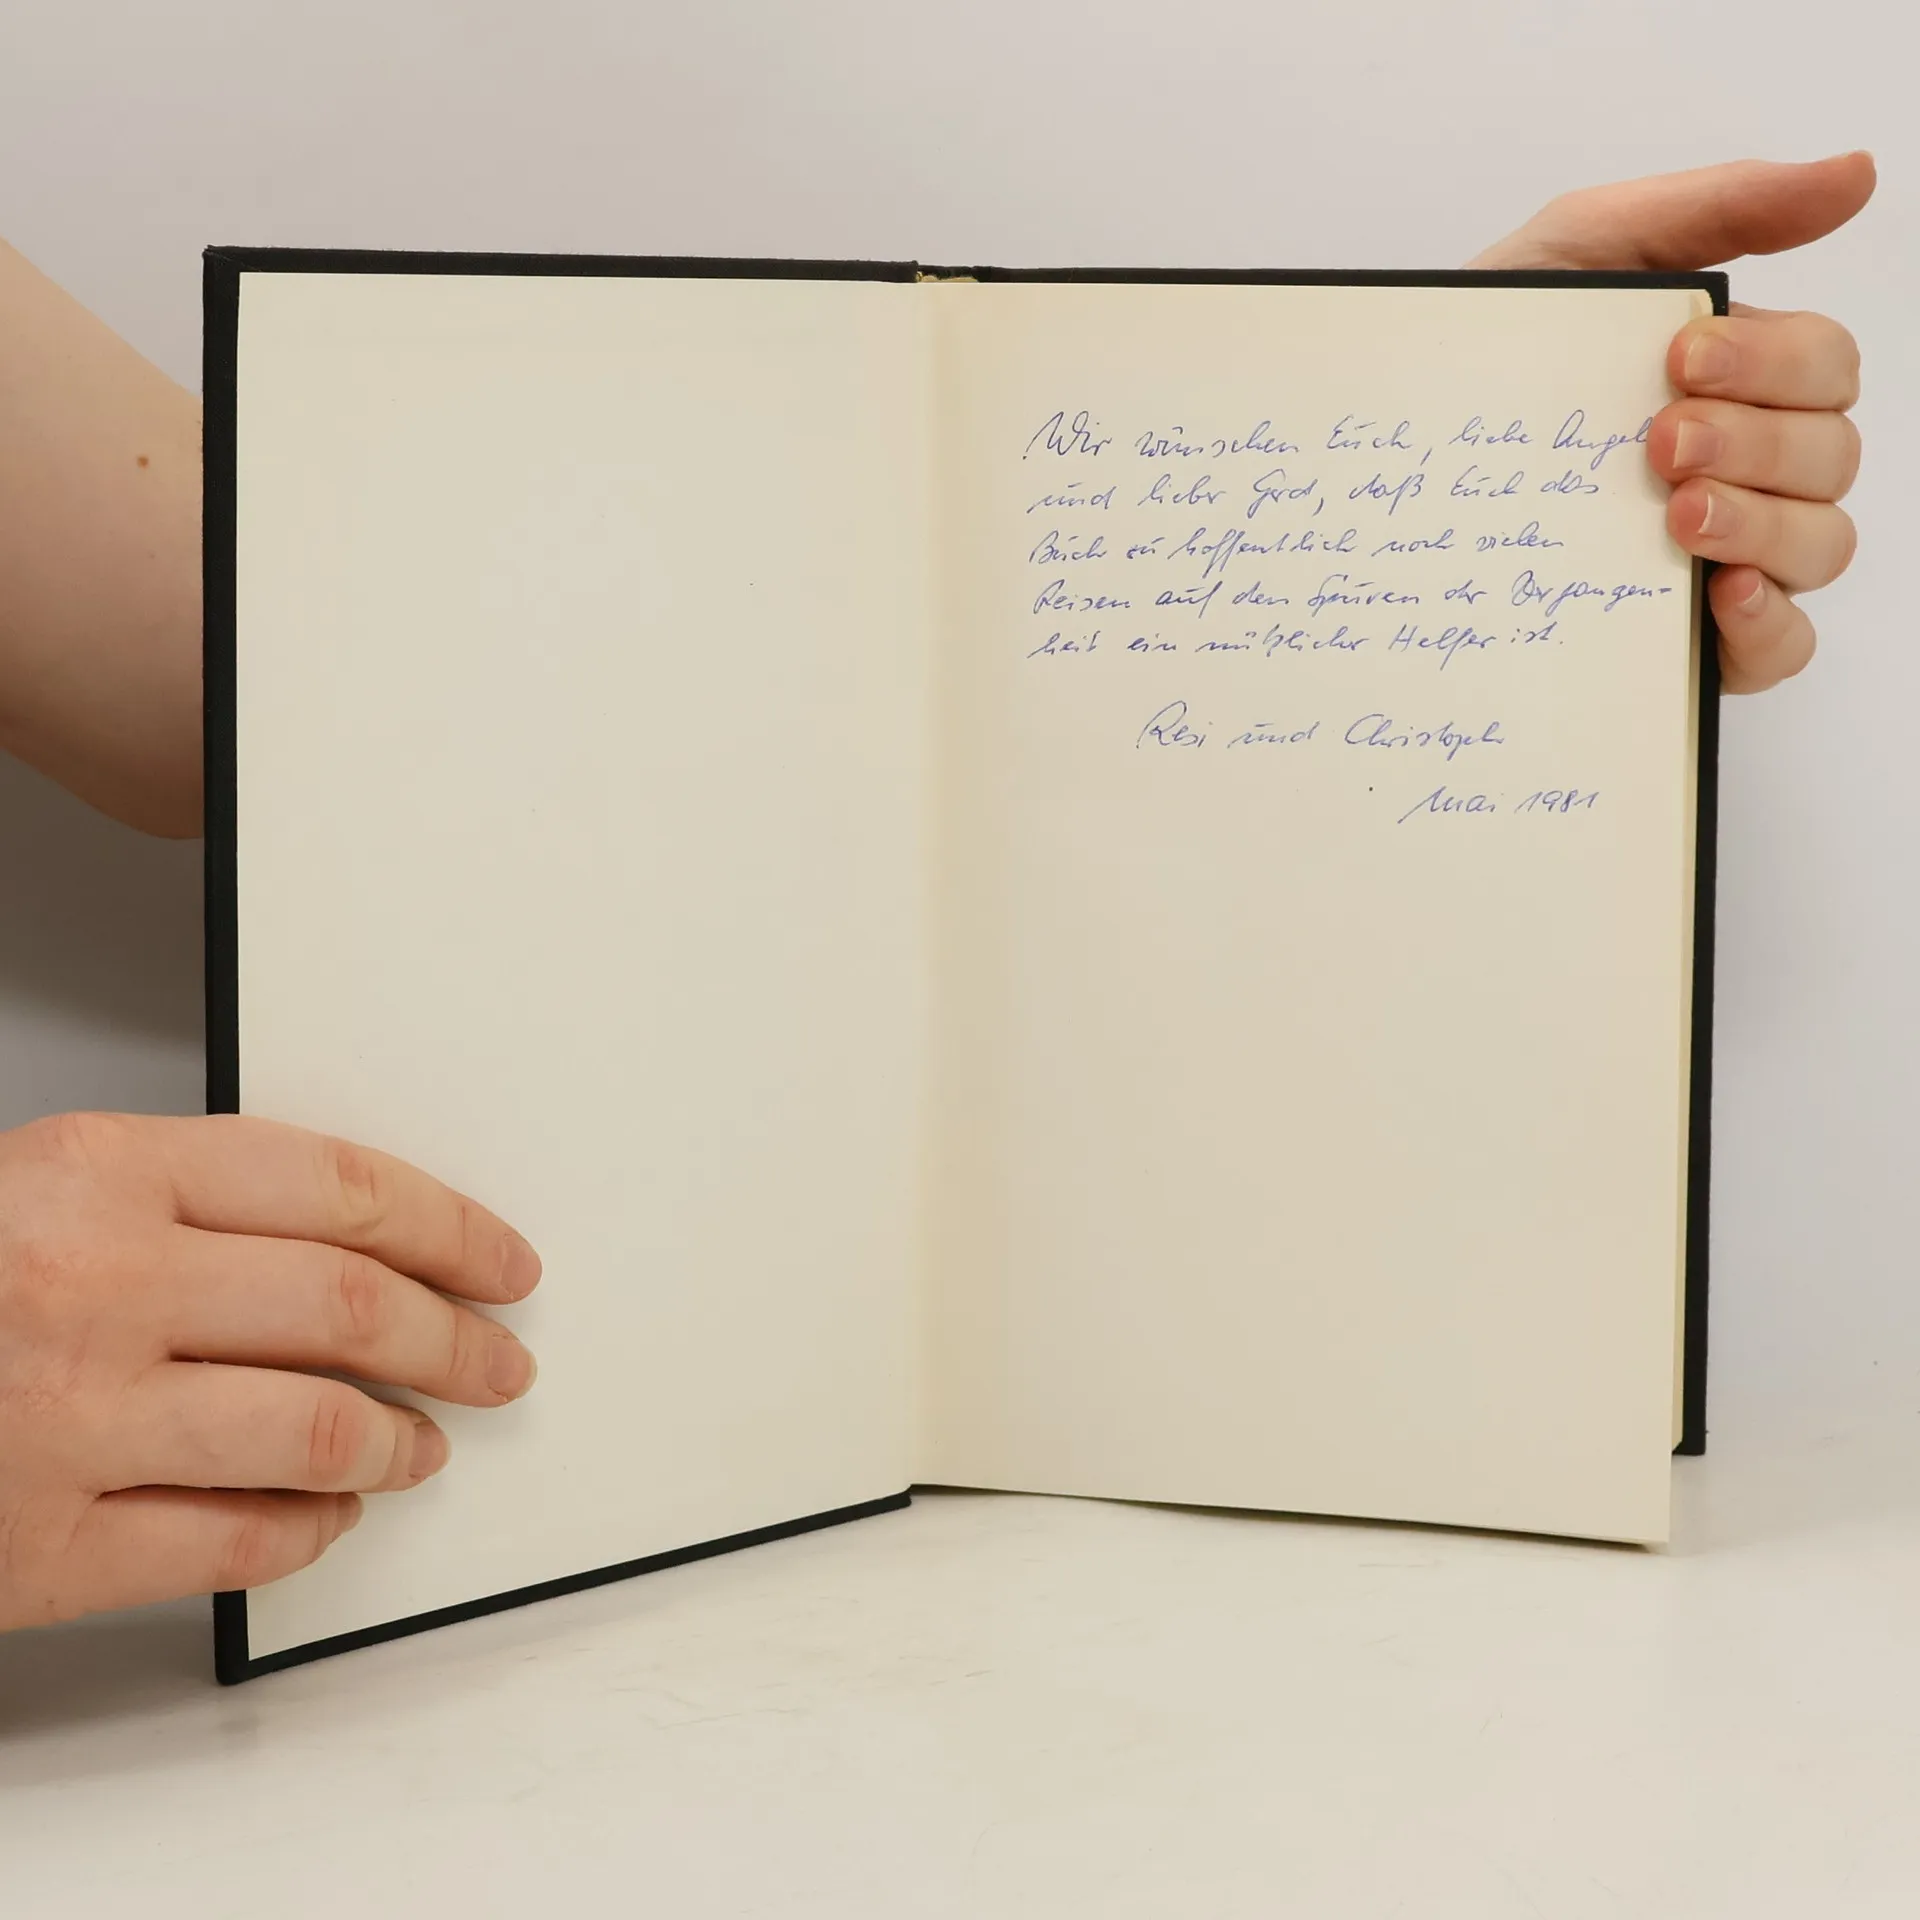 Wir wünschen Euch, liebe Angel
und lieber Gerd, daß Euch das
Buch zu hoffentlich noch vielen
Reisen auf den Spuren der Vergangen-
heit ein nützlicher Helfer ist.
Resi und Christoph
Mai 1981